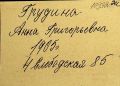 Грудина
Анна Григорьевна
1985г.
Н. Слободская 85